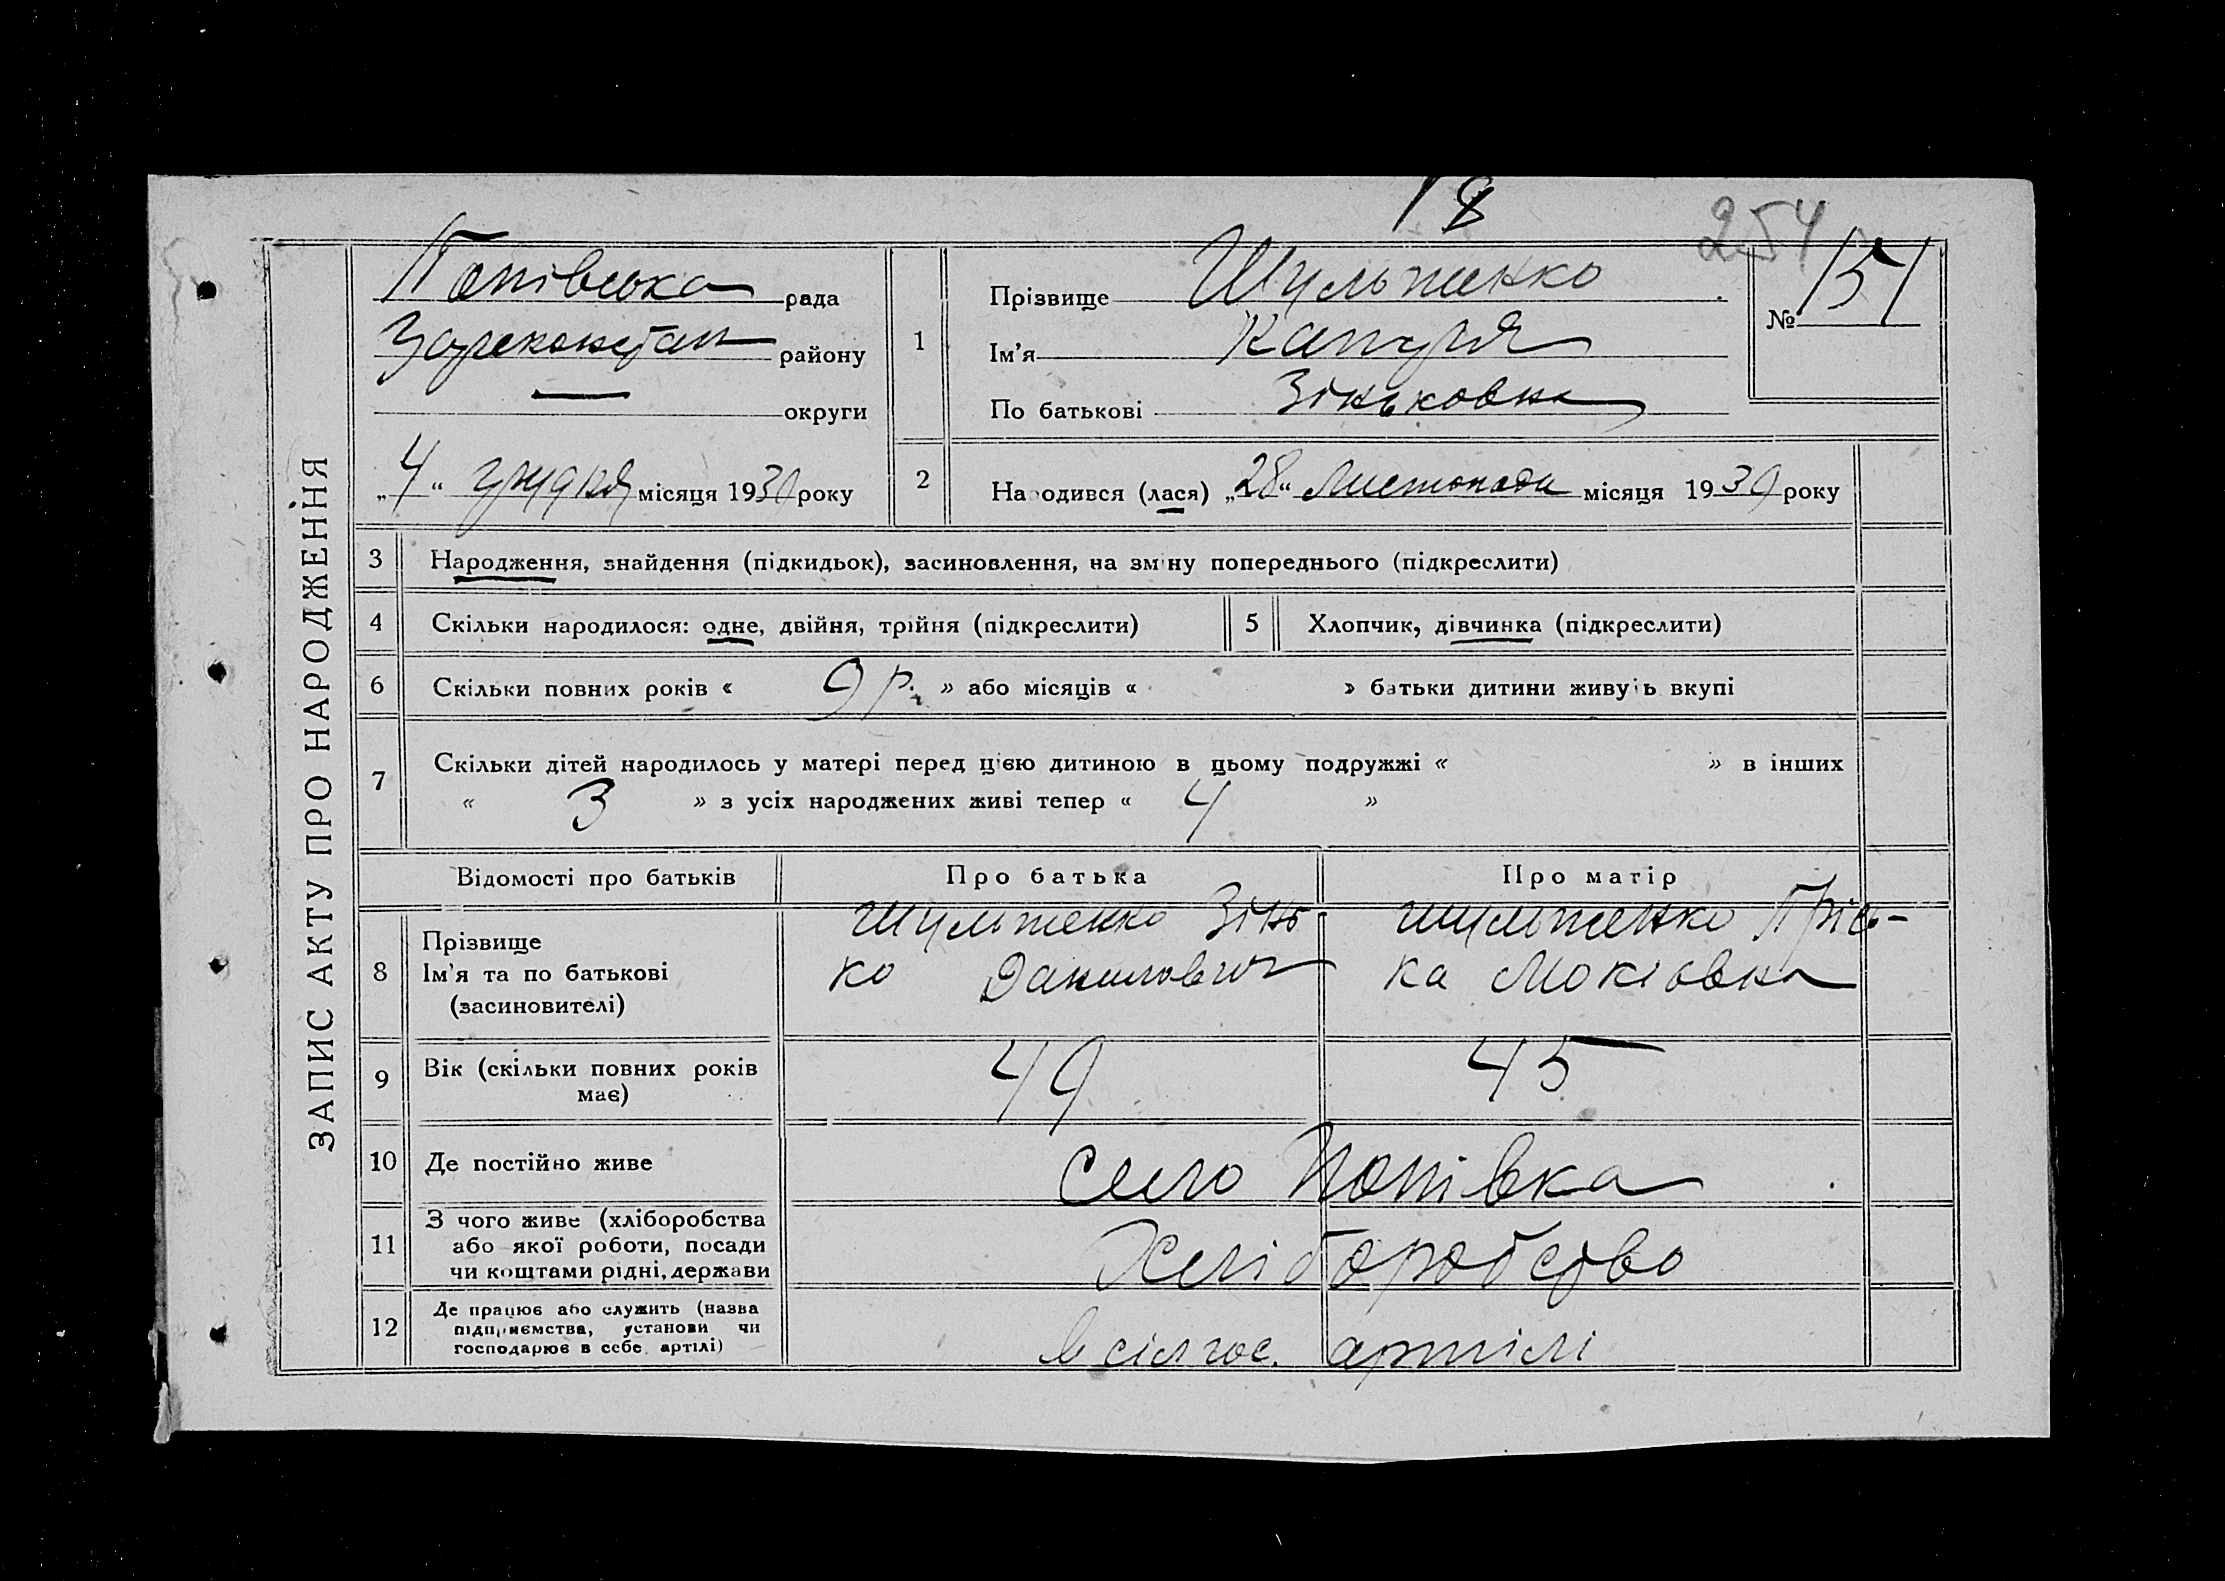 18
254
Попівська рада
району
округи
„4“ грудня місяця 1930 року
1
Прізвище Шульженко
Ім'я Катря
По батькові Зіньковна
№ 151
2
Народився (лася) „28“ Листопада місяця 1930 року
ЗАПИС АКТУ ПРО НАРОДЖЕННЯ
3 Народження, знайдення (підкидьок), засиновлення, на зміну попереднього (підкреслити)
4 Скільки народилося: одне, двійня, трійня (підкреслити)
5 Хлопчик, дівчинка (підкреслити)
6 Скільки повних років « 9 р. » або місяців « » батьки дитини живуть вкупі
7 Скільки дітей народилось у матері перед цією дитиною в цьому подружжі « » в інших
« 3 » з усіх народжених живі тепер « 4 »
Відомості про батьків Про батька Про матір
8 Прізвище
Ім'я та по батькові
(засиновителі)
Шульженко Зінь
ко Данилович
Шульженко Прісь-
ка Мокіовна
9 Вік (скільки повних років
має)
49 45
10 Де постійно живе село Попівка
11 З чого живе (хліборобства
або якої роботи, посади
чи коштами рідні, держави
Хліборобство
12 Де працює або служить (назва
підприємства, установи чи
господарює в себе, артілі)
в сілгос. артілі